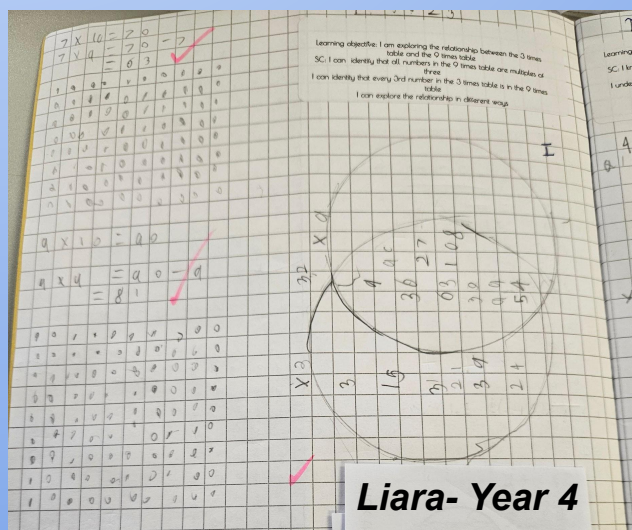 7 x 10 = 70
7 x 9 = 70 - 7
= 63
9 x 10 = 90
9 x 9 = 90 - 9
= 81
Learning objective: I am exploring the relationship between the 3 times
table and the 9 times table
SC: I can identify that all numbers in the 9 times table are multiples of
three
I can identify that every 3rd number in the 3 times table is in the 9 times
table
I can explore the relationship in different ways
I
x 9
x3
32
9
90
36
27
63
108
99
54
3
15
21
39
24
Learning
SC: I
I unde
Liara- Year 4